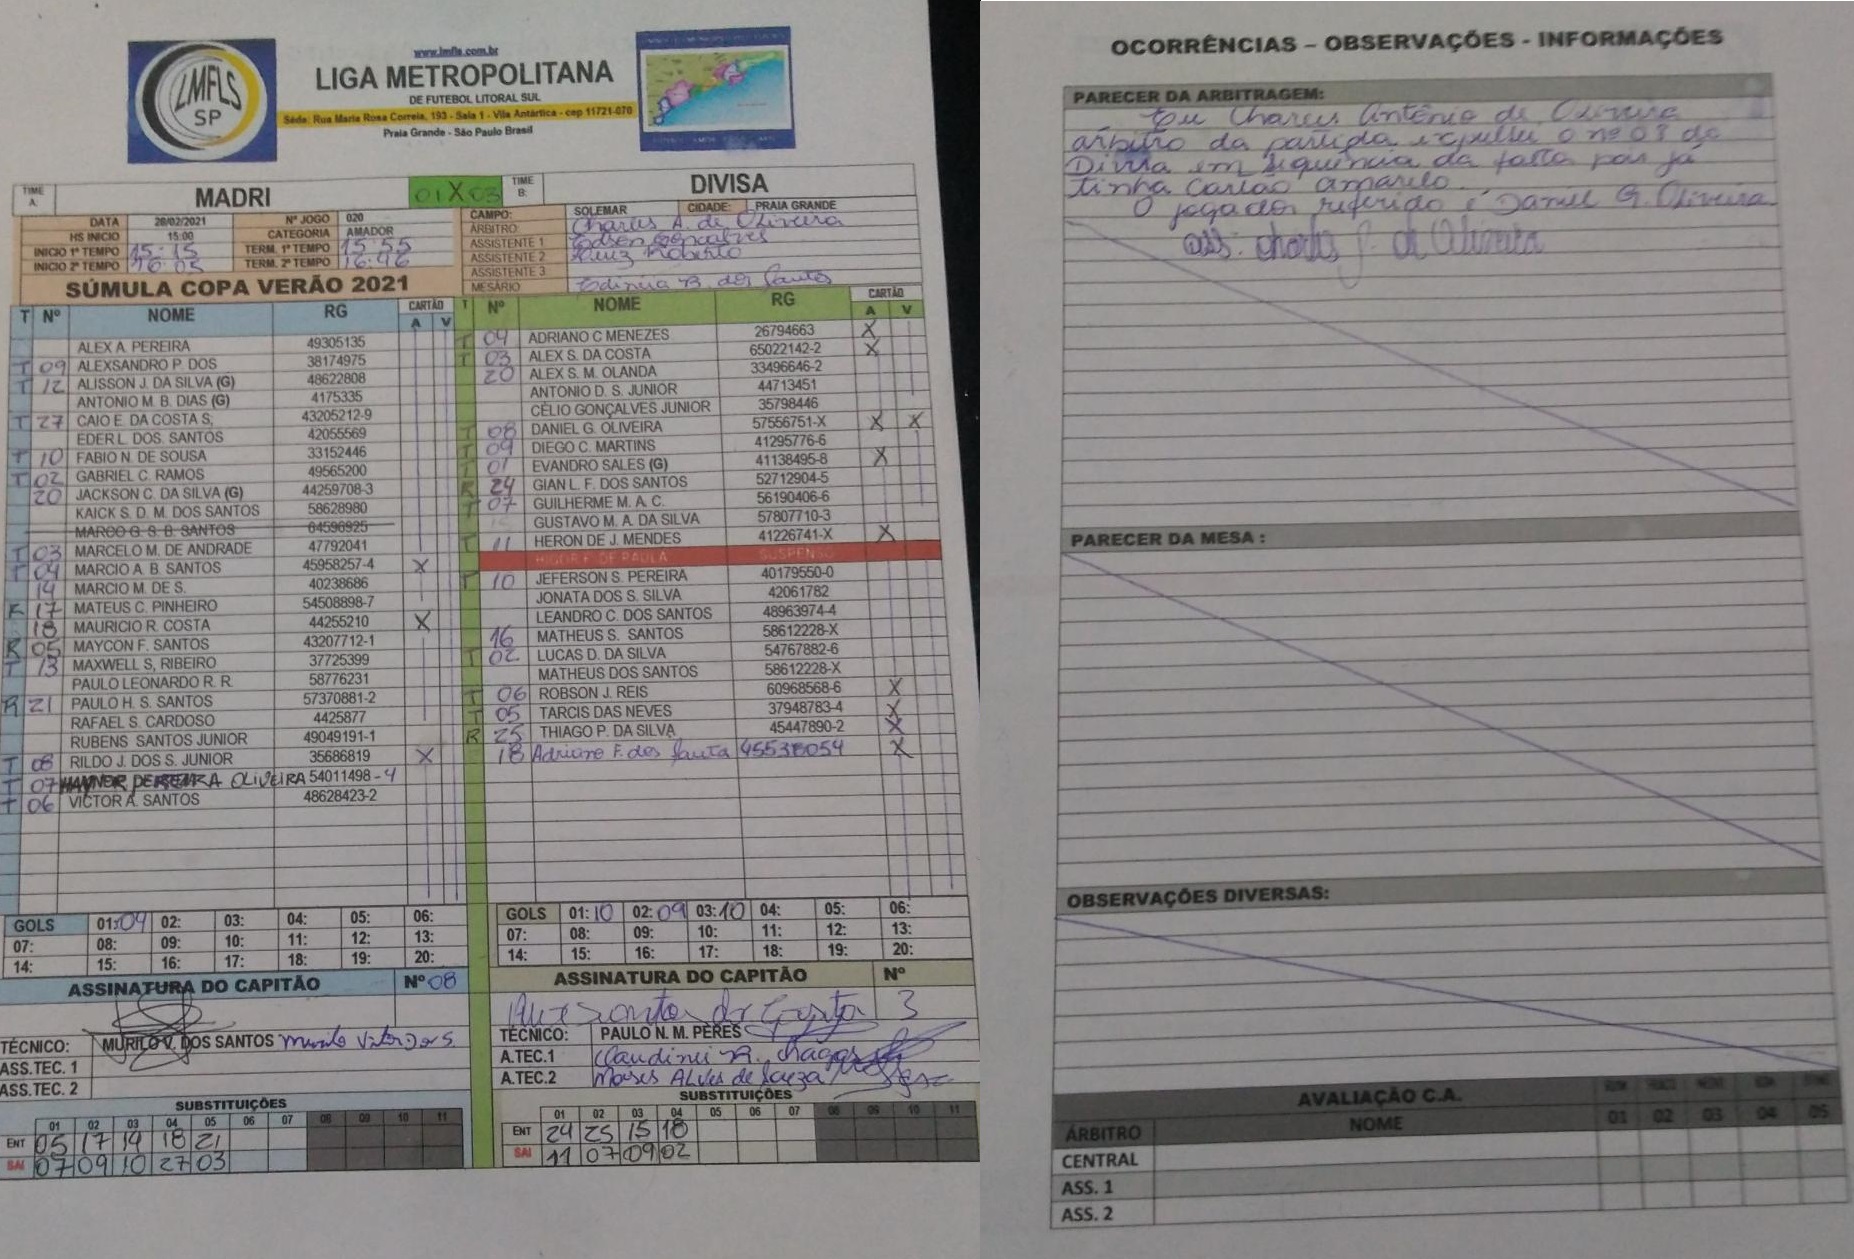 www.lmfls.com.br
LIGA METROPOLITANA
DE FUTEBOL LITORAL SUL
Séde: Rua Maria Rosa Correia, 193 - Sala 1 - Vila Antártica - cep 11721-070
Praia Grande - São Paulo Brasil
LMFLS
SP
TIME A: MADRI 01 X 03 TIME B: DIVISA
DATA 28/02/2021 Nº JOGO 020
HS INICIO 15:00 CATEGORIA AMADOR
INICIO 1º TEMPO 15:15 TERM. 1º TEMPO 15:55
INICIO 2º TEMPO 16:05 TERM. 2º TEMPO 16:46
CAMPO: SOLEMAR CIDADE: PRAIA GRANDE
ÁRBITRO: Charles A. de Oliveira
ASSISTENTE 1 Edson Gonçalves
ASSISTENTE 2 Luiz Roberto
ASSISTENTE 3
MESÁRIO dos Santos
SÚMULA COPA VERÃO 2021
T Nº NOME RG CARTÃO A V
ALEX A. PEREIRA 49305135
T 09 ALEXSANDRO P. DOS 38174975
T 12 ALISSON J. DA SILVA (G) 48622808
ANTONIO M. B. DIAS (G) 4175335
T 27 CAIO E. DA COSTA S, 43205212-9
EDER L. DOS. SANTOS 42055569
T 10 FABIO N. DE SOUSA 33152446
T 02 GABRIEL C. RAMOS 49565200
20 JACKSON C. DA SILVA (G) 44259708-3
KAICK S. D. M. DOS SANTOS 58628980
MARCO G. S. B. SANTOS 64596925
T 03 MARCELO M. DE ANDRADE 47792041
T 04 MARCIO A. B. SANTOS 45958257-4 X
14 MARCIO M. DE S. 40238686
R 17 MATEUS C. PINHEIRO 54508898-7
18 MAURICIO R. COSTA 44255210 X
R 05 MAYCON F. SANTOS 43207712-1
T 13 MAXWELL S, RIBEIRO 37725399
PAULO LEONARDO R. R. 58776231
R 21 PAULO H. S. SANTOS 57370881-2
RAFAEL S. CARDOSO 4425877
RUBENS SANTOS JUNIOR 49049191-1
T 08 RILDO J. DOS S. JUNIOR 35686819 X
T 07 OLIVEIRA 54011498-4
T 06 VICTOR A. SANTOS 48628423-2
T Nº NOME RG CARTÃO A V
T 04 ADRIANO C MENEZES 26794663 X
T 03 ALEX S. DA COSTA 65022142-2 X
20 ALEX S. M. OLANDA 33496646-2
ANTONIO D. S. JUNIOR 44713451
CÉLIO GONÇALVES JUNIOR 35798446
T 08 DANIEL G. OLIVEIRA 57556751-X X X
T 09 DIEGO C. MARTINS 41295776-6
T 01 EVANDRO SALES (G) 41138495-8 X
R 24 GIAN L. F. DOS SANTOS 52712904-5
T 07 GUILHERME M. A. C. 56190406-6
GUSTAVO M. A. DA SILVA 57807710-3
T 11 HERON DE J. MENDES 41226741-X X
HIGOR F. DE PAULA SUSPENSO
T 10 JEFERSON S. PEREIRA 40179550-0
JONATA DOS S. SILVA 42061782
LEANDRO C. DOS SANTOS 48963974-4
16 MATHEUS S. SANTOS 58612228-X
T 02 LUCAS D. DA SILVA 54767882-6
MATHEUS DOS SANTOS 58612228-X
T 06 ROBSON J. REIS 60968568-6 X
T 05 TARCIS DAS NEVES 37948783-4 X
R 25 THIAGO P. DA SILVA 45447890-2 X
18 Adriano F. dos X
GOLS 01: 04 02: 03: 04: 05: 06:
07: 08: 09: 10: 11: 12: 13:
14: 15: 16: 17: 18: 19: 20:
ASSINATURA DO CAPITÃO Nº 08
TÉCNICO: MURILO V. DOS SANTOS
ASS.TEC. 1
ASS.TEC. 2
SUBSTITUIÇÕES
01 02 03 04 05 06 07 08 09 10 11
ENT 05 17 14 18 21
SAI 07 09 10 27 03
GOLS 01: 10 02: 09 03: 10 04: 05: 06:
07: 08: 09: 10: 11: 12: 13:
14: 15: 16: 17: 18: 19: 20:
ASSINATURA DO CAPITÃO Nº
3
TÉCNICO: PAULO N. M. PERES
A.TEC.1 Claudinei R. Chagas
A.TEC.2 Moises ALves de Souza
SUBSTITUIÇÕES
01 02 03 04 05 06 07 08 09 10 11
ENT 24 25 15 18
SAI 11 07 09 02
OCORRÊNCIAS – OBSERVAÇÕES - INFORMAÇÕES
PARECER DA ARBITRAGEM:
Eu Charles Antônio de Oliveira
árbitro da partida expulsei o nº 08 do
Divisa em sequência da falta pois já
tinha Cartão amarelo.
O jogador referido é Daniel G. Oliveira
ass: de Oliveira
PARECER DA MESA :
OBSERVAÇÕES DIVERSAS:
AVALIAÇÃO C.A.
ÁRBITRO NOME 01 02 03 04 05
CENTRAL
ASS. 1
ASS. 2